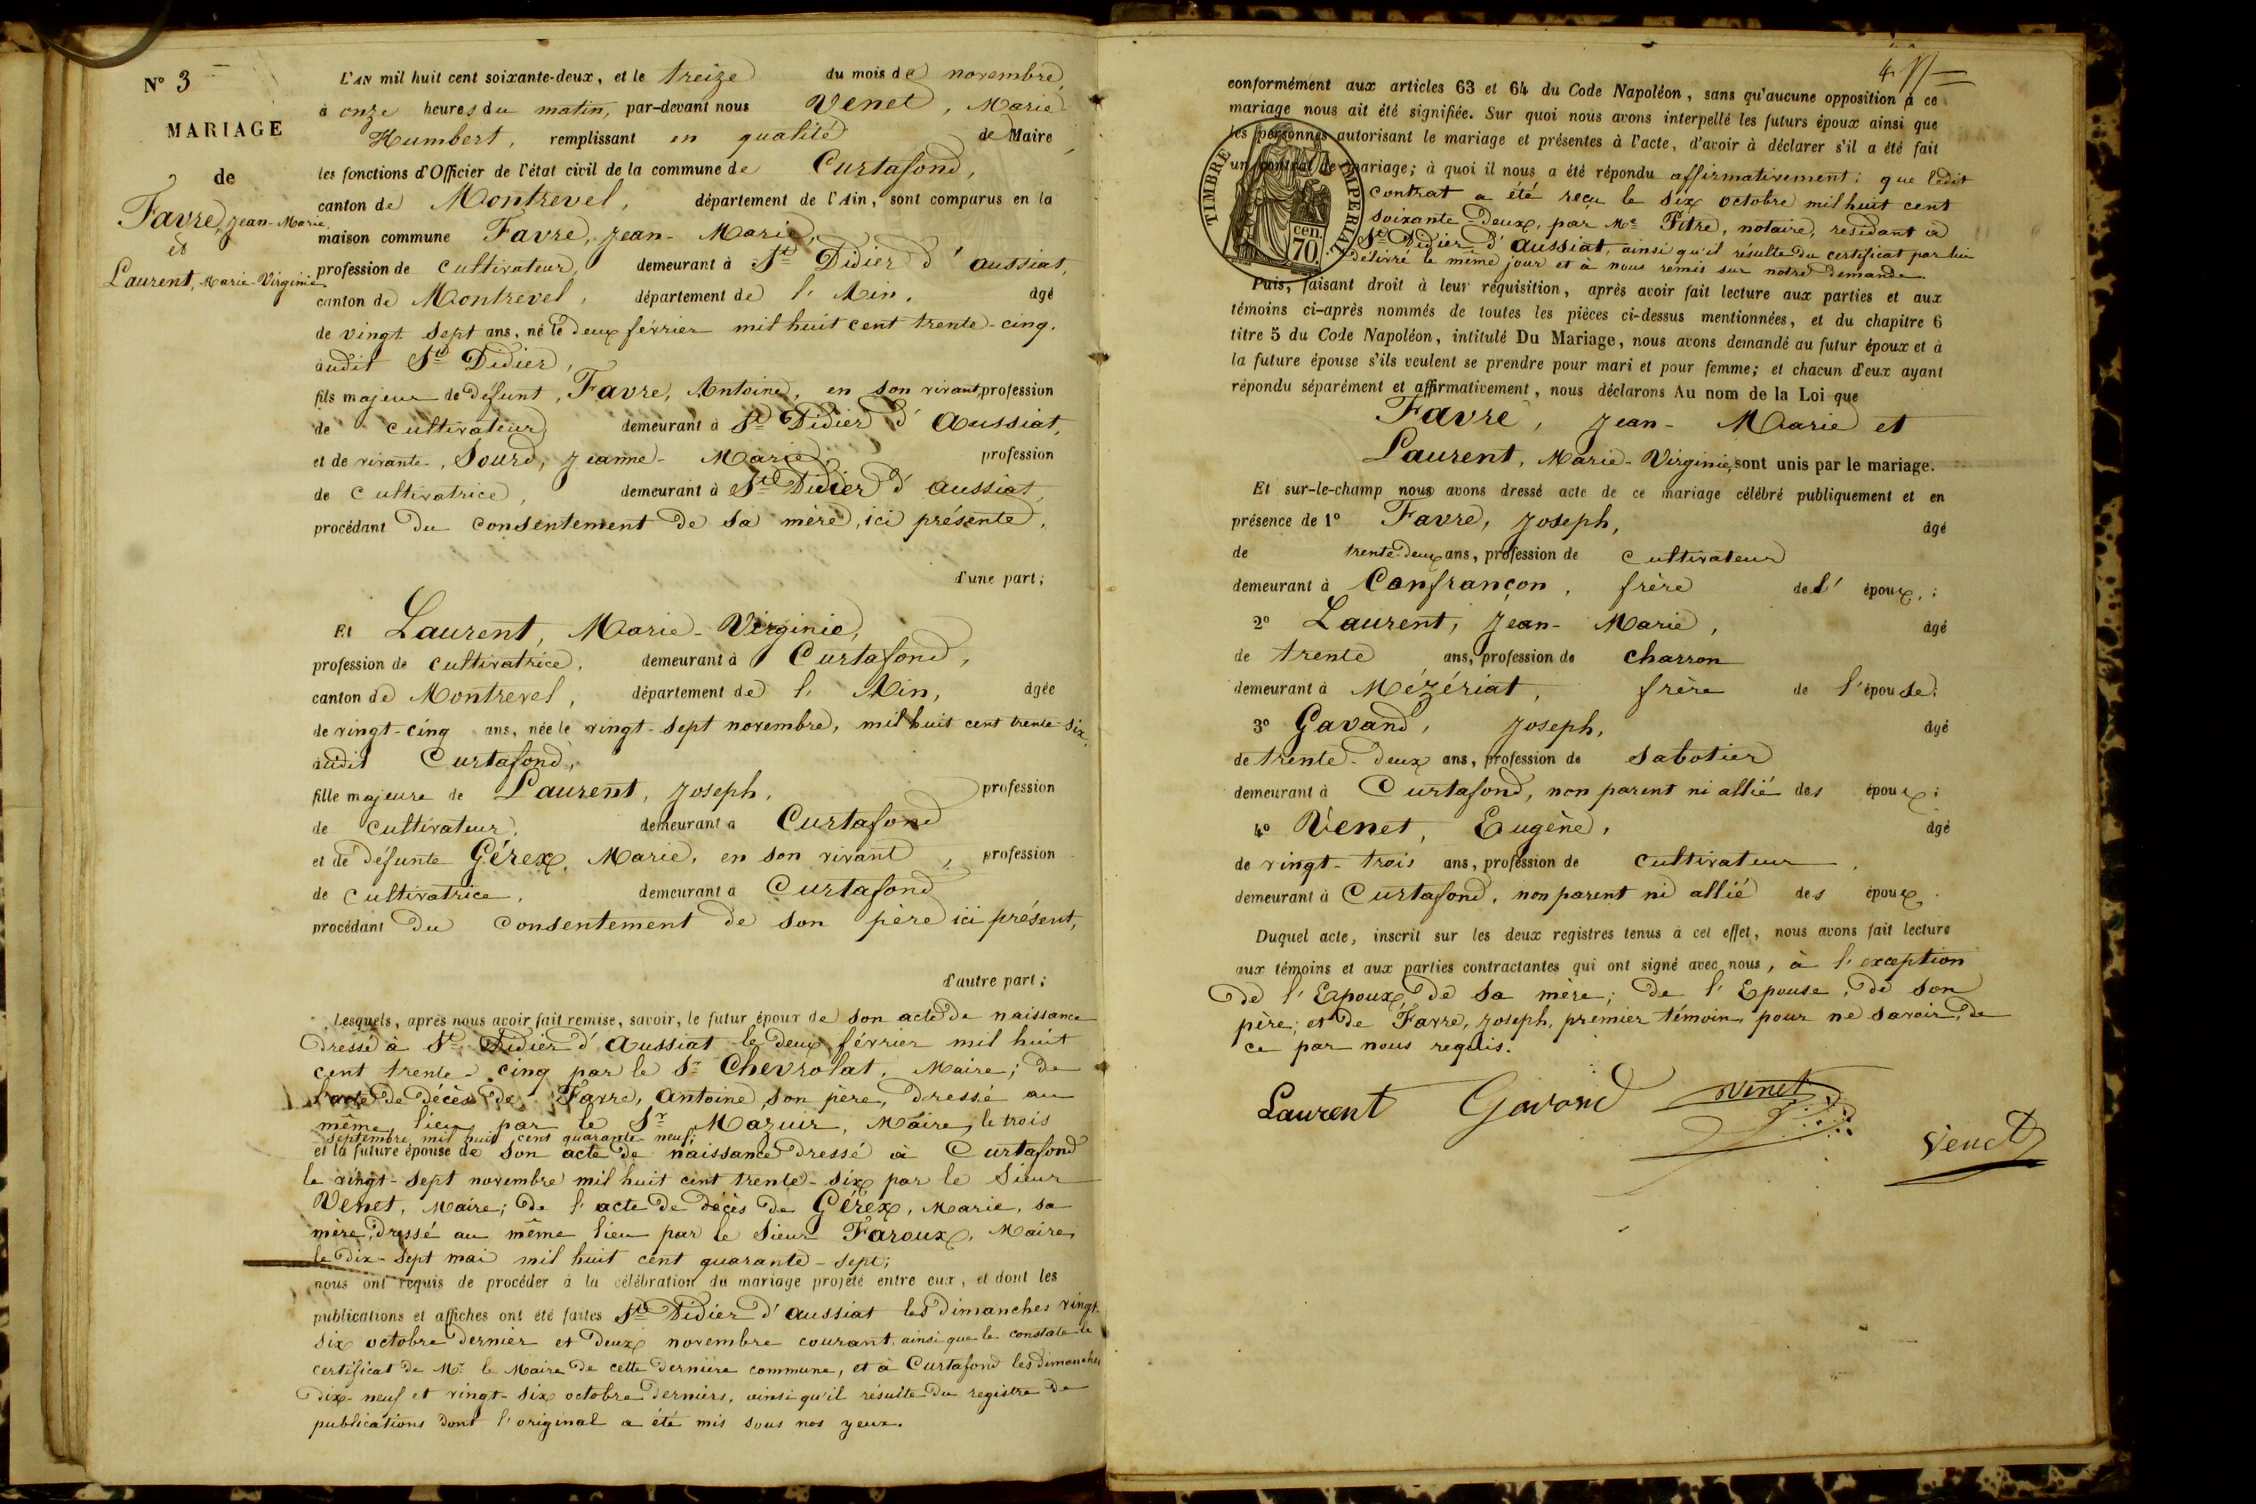 N° 3
MARIAGE
de
Favre, Jean-Marie,
et
Laurent, Marie-Virginie.
L'AN mil huit cent soixante-deux, et le treize du mois de novembre
à onze heures du matin, par-devant nous Venet, Marie
Humbert, remplissant en qualité de Maire,
les fonctions d'Officier de l'état civil de la commune de Curtafond,
canton de Montrevel, département de l'Ain, sont comparus en la
maison commune Favre, Jean-Marie,
profession de cultivateur, demeurant à St Didier d'Aussiat,
canton de Montrevel, département de l'Ain, âgé
de vingt sept ans, né le deux février mil huit cent trente-cinq.
audit St Didier,
fils majeur de défunt, Favre, Antoine, en son vivant, profession
de cultivateur, demeurant à St Didier d'Aussiat,
et de vivante, Sourd, Jeanne-Marie, profession
de cultivatrice, demeurant à St Didier d'Aussiat,
procédant du consentement de sa mère, ici présente,
d'une part;
Et Laurent, Marie-Virginie,
profession de cultivatrice, demeurant à Curtafond,
canton de Montrevel, département de l'Ain, âgée
de vingt-cinq ans, née le vingt-sept novembre, mil huit cent trente-six,
audit Curtafond,
fille majeure de Laurent, Joseph, profession
de cultivateur, demeurant à Curtafond
et de défunte Gérex, Marie, en son vivant, profession
de cultivatrice, demeurant à Curtafond
procédant du consentement de son père ici présent,
d'autre part;
Lesquels, après nous avoir fait remise, savoir, le futur époux de son acte de naissance
dressé à St Didier d'Aussiat le deux février mil huit
cent trente-cinq par le Sr Chevrolat, Maire; de
l'acte de décès de Favre, Antoine, son père, dressé au
même lieu par le Sr Mazuir, Maire, le trois
septembre mil huit cent quarante-neuf;
et la future épouse de son acte de naissance dressé à Curtafond
le vingt-sept novembre mil huit cent trente-six par le Sieur
Venet, Maire; de l'acte de décès de Gérex, Marie, sa
mère, dressé au même lieu par le Sieur Faroux, Maire,
le dix-sept mai mil huit cent quarante-sept;
nous ont requis de procéder à la célébration du mariage projeté entre eux, et dont les
publications et affiches ont été faites St Didier d'Aussiat les dimanches vingt-
six octobre dernier et deux novembre courant, ainsi que le constate le
certificat de Mr le Maire de cette dernière commune, et à Curtafond les dimanches
dix-neuf et vingt-six octobre derniers, ainsi qu'il résulte du registre de
publications dont l'original a été mis sous nos yeux.
conformément aux articles 63 et 64 du Code Napoléon, sans qu'aucune opposition à ce
mariage nous ait été signifiée. Sur quoi nous avons interpellé les futurs époux ainsi que
les personnes autorisant le mariage et présentes à l'acte, d'avoir à déclarer s'il a été fait
un contrat de mariage; à quoi il nous a été répondu affirmativement: que ledit
contrat a été reçu le six octobre mil huit cent
soixante-deux, par Me Fitre, notaire, résidant à
St Didier d'Aussiat, ainsi qu'il résulte du certificat par lui
délivré le même jour et à nous remis sur notre demande.
TIMBRE IMPERIAL
cen.
70
Puis, faisant droit à leur réquisition, après avoir fait lecture aux parties et aux
témoins ci-après nommés de toutes les pièces ci-dessus mentionnées, et du chapitre 6
titre 5 du Code Napoléon, intitulé Du Mariage, nous avons demandé au futur époux et à
la future épouse s'ils veulent se prendre pour mari et pour femme; et chacun d'eux ayant
répondu séparément et affirmativement, nous déclarons Au nom de la Loi que
Favre, Jean-Marie et
Laurent, Marie-Virginie, sont unis par le mariage.
Et sur-le-champ nous avons dressé acte de ce mariage célébré publiquement et en
présence de 1° Favre, Joseph, âgé
de trente-deux ans, profession de cultivateur
demeurant à Confrançon, frère de l'époux;
2° Laurent, Jean-Marie, âgé
de trente ans, profession de charron
demeurant à Mézériat, frère de l'épouse;
3° Gavand, Joseph, âgé
de trente-deux ans, profession de sabotier
demeurant à Curtafond, non parent ni allié des époux;
4° Venet, Eugène, âgé
de vingt-trois ans, profession de cultivateur
demeurant à Curtafond, non parent ni allié des époux.
Duquel acte, inscrit sur les deux registres tenus à cet effet, nous avons fait lecture
aux témoins et aux parties contractantes qui ont signé avec nous, à l'exception
de l'Epoux, de sa mère; de l'Epouse, de son
père; et de Favre, Joseph, premier témoin, pour ne savoir, de
ce par nous requis.
Laurent Gavand Venet
Venet